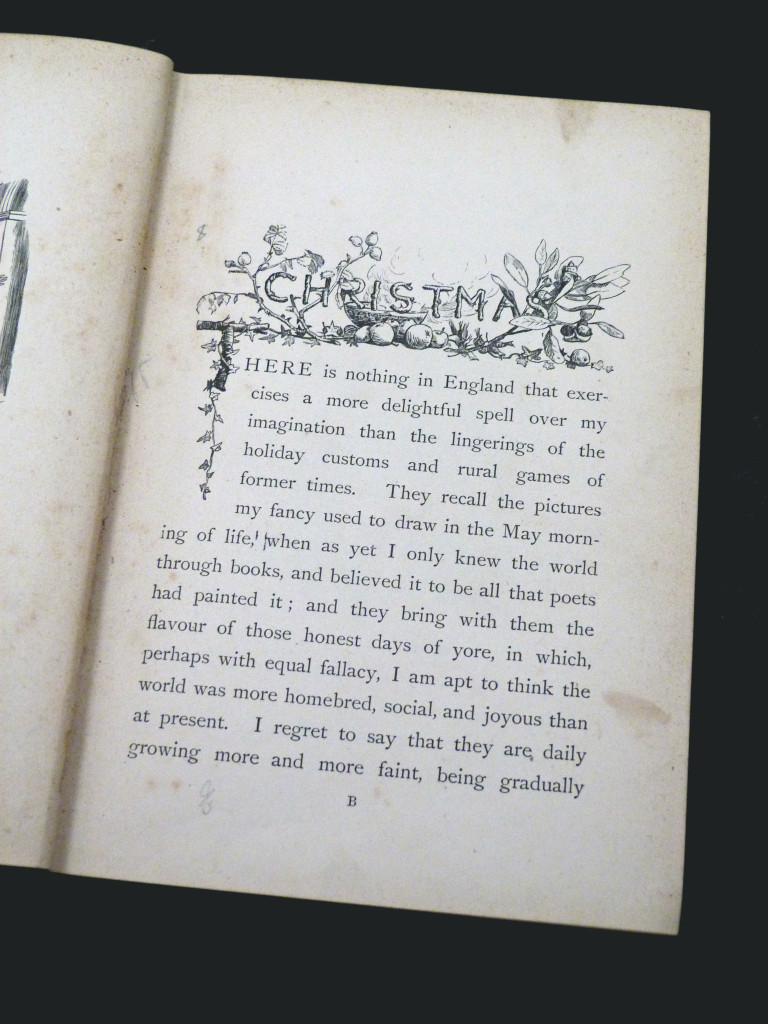 CHRISTMAS
THERE is nothing in England that exer-
cises a more delightful spell over my
imagination than the lingerings of the
holiday customs and rural games of
former times. They recall the pictures
my fancy used to draw in the May morn-
ing of life, when as yet I only knew the world
through books, and believed it to be all that poets
had painted it; and they bring with them the
flavour of those honest days of yore, in which,
perhaps with equal fallacy, I am apt to think the
world was more homebred, social, and joyous than
at present. I regret to say that they are daily
growing more and more faint, being gradually
B